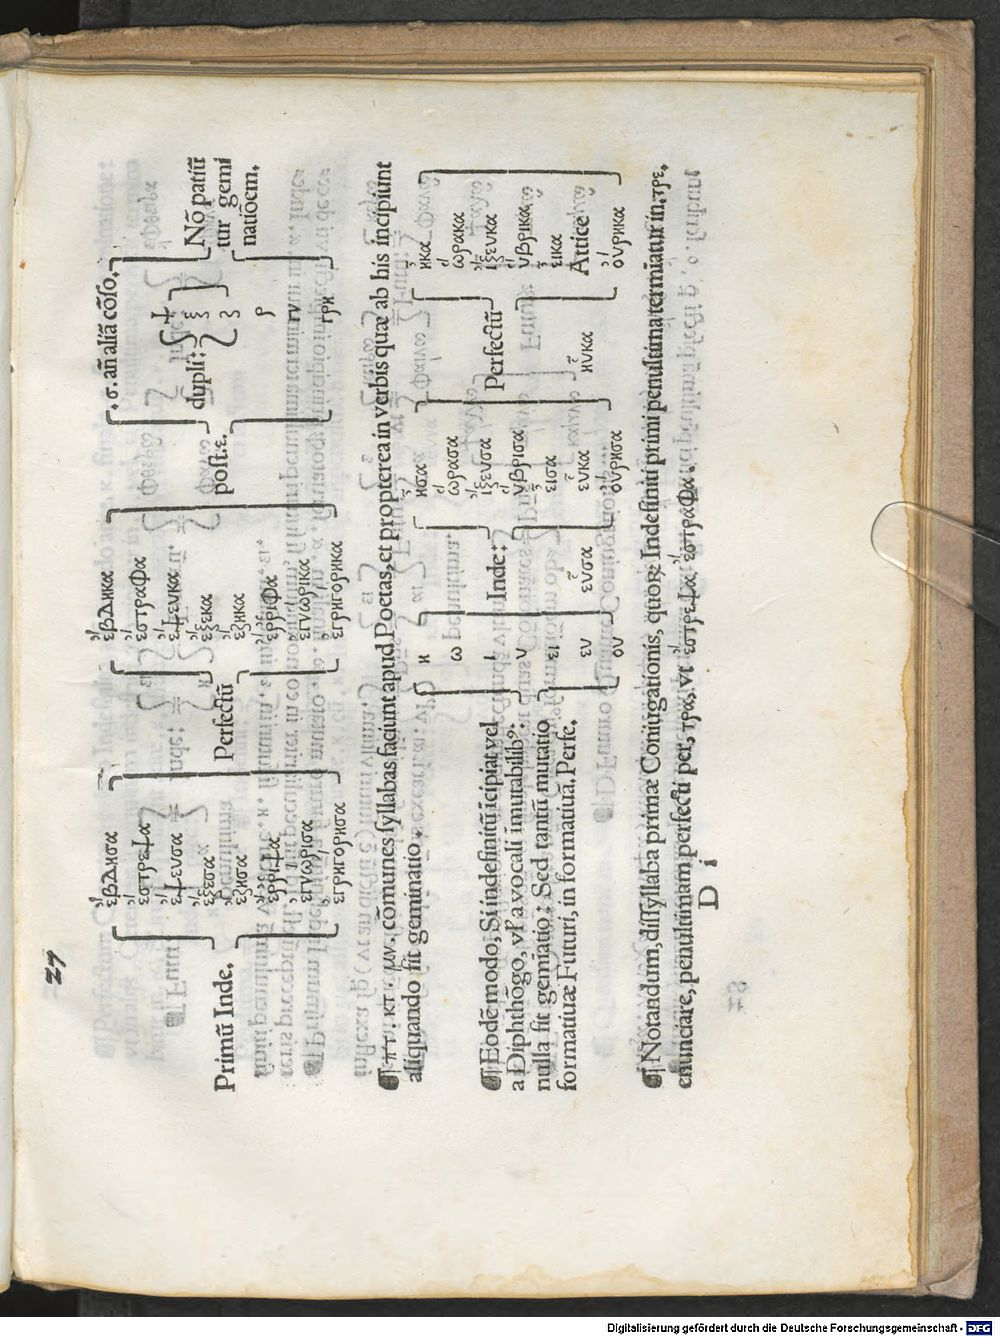 27
Primũ Inde.
ἔβδησα
ἔστρεψα
ἔψευσα
ἔξεσα
ἔζησα
ἔρριψα
ἐγνώρισα
ἐγρηγόρησα
Perfectũ
ἔβδηκα
ἔστραφα
ἔψευκα
ἔξεκα
ἔζηκα
ἔρριφα
ἐγνώρικα
ἐγρηγόρικα
post.ε.
.σ. añ aliã cõso.
dupli:
ψ
ξ
ζ
ρ
γν
γρη
Nõ patiũ
tur gemi
natiõem.
¶ πτ. κτ. μν. cõmunes syllabas faciunt apud Poetas, et propterea in verbis quæ ab his incipiunt
aliquando fit geminatio.
¶ Eodẽ modo, Si indefinitũ icipiat vel
a Diphthõgo, vl̃ a vocali imutabilibꝰ:
nulla fit gemiatio: Sed tantũ mutatio
formatiuæ Futuri, in formatiuã. Perfe.
η
ω
ι
υ
ει
ευ
ου
Inde:
ᾖσα
ὥρασα
ἴξευσα
ὕβρισα
εἶσα
εὗκα
οὔρησα
εὖσα
Perfectũ
ἧκα
ὥρακα
ἴξευκα
ὕβρικα
εἶκα
Attice
οὔρηκα
ηὗκα
¶ Notandum, dissyllaba primæ Coniugationis, quoꝝ Indefiniti primi penultima termiatur in, τρε,
enunciare, penultimam perfecti per, τρα, vt ἔστρεψα, ἔστραφα.
D i
Digitalisierung gefördert durch die Deutsche Forschungsgemeinschaft - DFG